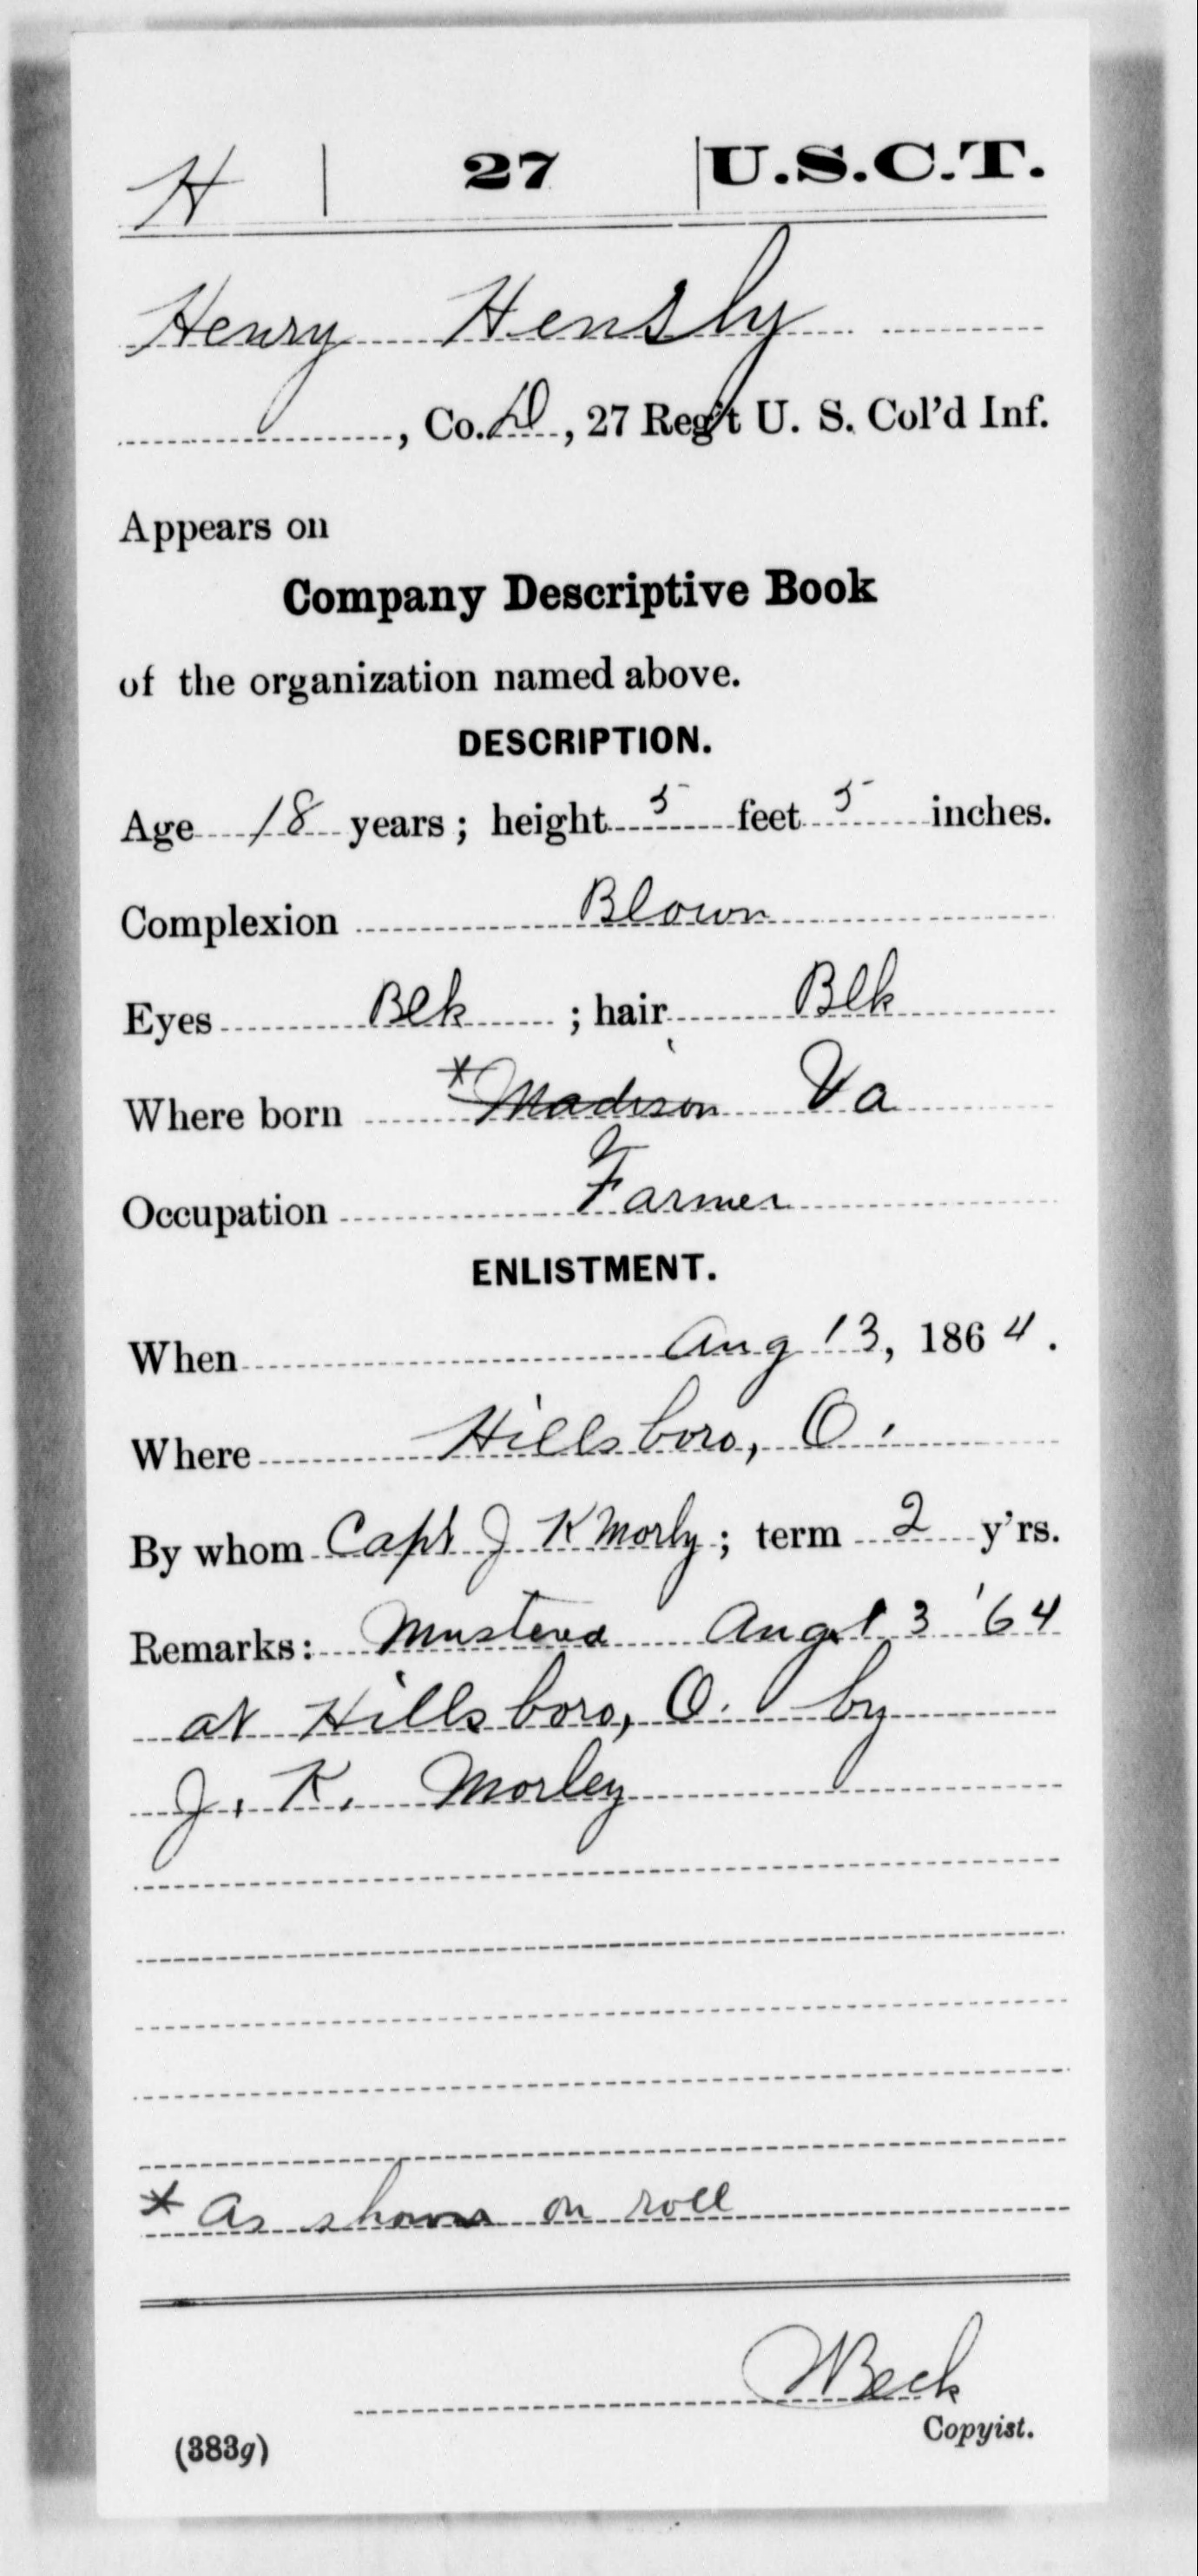 H | 27 | U.S.C.T.
Henry Hensly
, Co. D, 27 Reg't U. S. Col'd Inf.
Appears on
Company Descriptive Book
of the organization named above.
DESCRIPTION.
Age 18 years; height 5 feet 5 inches.
Complexion Blown
Eyes Blk ; hair Blk
Where born *Madison Va
Occupation Farmer
ENLISTMENT.
When Aug 13, 1864.
Where Hillsboro, O.
By whom Capt J K Morly; term 2 y'rs.
Remarks: Mustered Aug 13 '64
at Hillsboro, O. by
J. K. Morley
* As shown on roll
Beck
Copyist.
(383g)